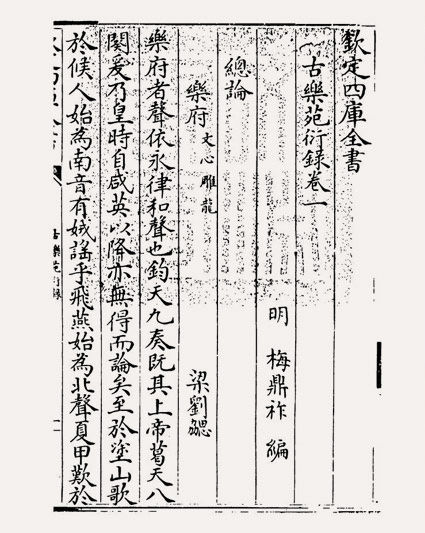 欽定四庫全書
古樂苑衍録卷一
明 梅鼎祚 編
總論
樂府 文心雕龍 梁劉勰
樂府者聲依永律和聲也鈞天九奏既其上帝葛天八
闋爰乃皇時自咸英以降亦無得而論矣至於塗山歌
於候人始為南音有娀謡乎飛燕始為北聲夏甲歎於
古樂苑衍録